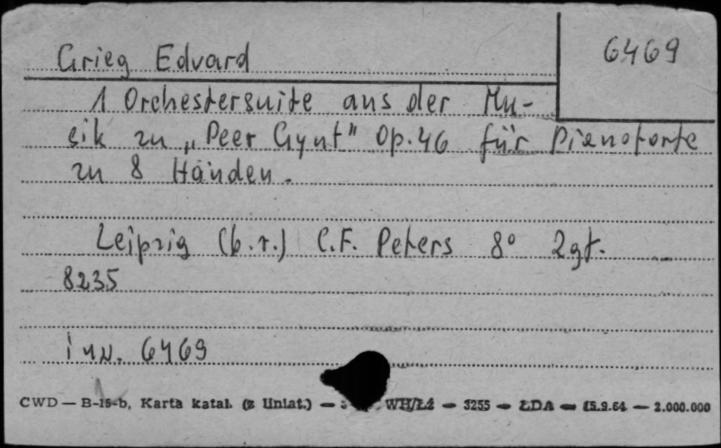 6469
Grieg Edvard
1 Orchestersuite aus der Mu-
sik zu „Peer Gynt" Op. 46 für Pianoforte
zu 8 Händen.
Leipzig (b.r.) C.F. Peters 8° 2gt.
8235
inw. 6469
CWD — B-15-b, Karta katal. (z liniat.) — WH/Łź — 3255 — ŁDA — 15.9.64 — 2.000.000